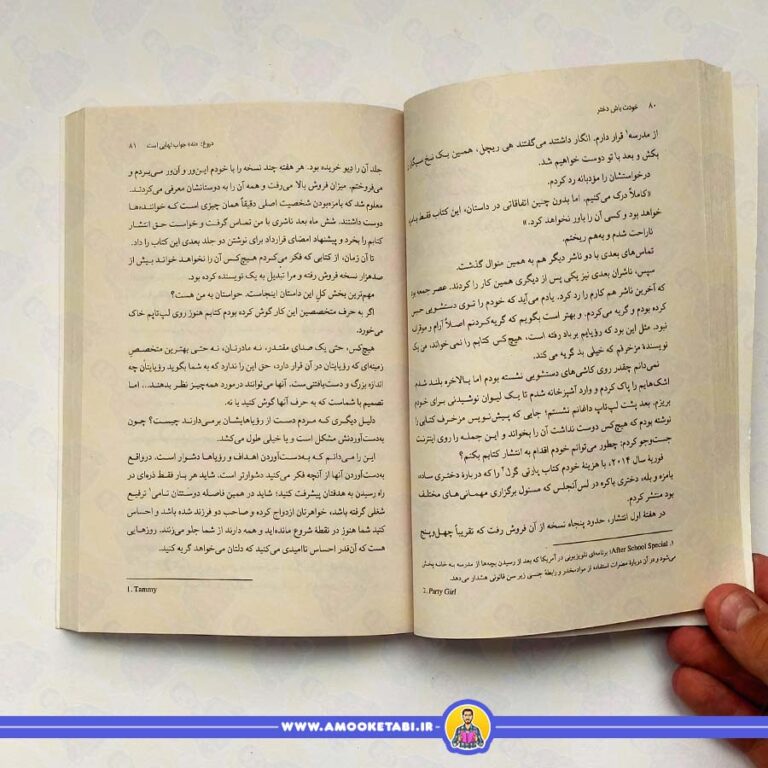 ۸۰ خودت باش دختر
از مدرسه۱ قرار دارم. انگار داشتند می‌گفتند هی ریچل، همین یک نخ سیگار
بکش و بعد با تو دوست خواهیم شد.
درخواستشان را مؤدبانه رد کردم.
«کاملاً درک می‌کنیم. اما بدون چنین اتفاقاتی در داستان، این کتاب فقط
خواهد بود و کسی آن را باور نخواهد کرد.»
ناراحت شدم و به‌هم ریختم.
تماس‌های بعدی با دو ناشر دیگر هم به همین منوال گذشت.
سپس، ناشران بعدی نیز یکی پس از دیگری همین کار را کردند. عصر جمعه بود
که آخرین ناشر هم کارم را رد کرد. یادم می‌آید که خودم را توی دستشویی حبس
کرده بودم و گریه می‌کردم. و بهتر است بگویم که گریه‌کردنم اصلاً آرام و موقرانه
نبود. مثل این بود که رؤیایم بر باد رفته است، هیچ‌کس کتابم را نمی‌خواند، من یک
نویسندهٔ مزخرفم که خیلی بد گریه می‌کند.
نمی‌دانم چقدر روی کاشی‌های دستشویی نشسته بودم اما بالاخره بلند شدم
اشک‌هایم را پاک کردم و وارد آشپزخانه شدم تا یک لیوان نوشیدنی برای خودم
بریزم. بعد پشت لپ‌تاپ داغانم نشستم؛ جایی که پیش‌نویس مزخرف کتابی را
نوشته بودم که هیچ‌کس دوست نداشت آن را بخواند و این جمله را روی اینترنت
جست‌وجو کردم: چطور می‌توانم خودم اقدام به انتشار کتابم بکنم؟
فوریهٔ سال ۲۰۱۴، با هزینهٔ خودم کتاب پارتی گرل۲ را که دربارهٔ دختری ساده،
بامزه و بله، دختری باکره در لس‌آنجلس که مسئول برگزاری مهمانی‌های مختلف
بود منتشر کردم.
در هفتهٔ اول انتشار، حدود پنجاه نسخه از آن فروش رفت که تقریباً چهل‌وپنج
۱. After School Special: برنامه‌ای تلویزیونی در آمریکا که بعد از رسیدن بچه‌ها از مدرسه به خانه پخش
می‌شود و در آن دربارهٔ مضرات استفاده از موادمخدر و رابطهٔ جنسی زیر سن قانونی هشدار می‌دهد.
2. Party Girl
دروغ: «نه» جواب نهایی است ۸۱
جلد آن را دیو خریده بود. هر هفته چند نسخه را با خودم این‌ور و آن‌ور می‌بردم و
می‌فروختم. میزان فروش بالا می‌رفت و همه آن را به دوستانشان معرفی می‌کردند.
معلوم شد که بامزه‌بودن شخصیت اصلی دقیقاً همان چیزی است که خواننده‌ها
دوست داشتند. شش ماه بعد ناشری با من تماس گرفت و خواست حق انتشار
کتابم را بخرد و پیشنهاد امضای قرارداد برای نوشتن دو جلد بعدی این کتاب را داد.
تا آن زمان، از کتابی که فکر می‌کردم هیچ‌کس آن را نخواهد خواند بیش از
صدهزار نسخه فروش رفته و مرا تبدیل به یک نویسنده کرده بود.
مهم‌ترین بخش کل این داستان اینجاست. حواستان به من هست؟
اگر به حرف متخصصین این کار گوش کرده بودم کتابم هنوز روی لپ‌تاپم خاک
می‌خورد.
هیچ‌کس، حتی یک صدای مقتدر، نه مادرتان، نه حتی بهترین متخصص
زمینه‌ای که رؤیایتان در آن قرار دارد، حق این را ندارد که به شما بگوید رؤیایتان چه
اندازه بزرگ و دست‌یافتنی‌ست. آنها می‌توانند درمورد همه‌چیز نظر بدهند... اما
تصمیم با شماست که به حرف آنها گوش کنید یا نه.
دلیل دیگری که مردم دست از رؤیاهایشان برمی‌دارند چیست؟ چون
به‌دست‌آوردنش مشکل است و یا خیلی طول می‌کشد.
این را می‌دانم که به‌دست‌آوردن اهداف و رؤیاها دشوار است. درواقع
به‌دست‌آوردن آنها از آنچه فکر می‌کنید دشوارتر است. شاید هر بار فقط ذره‌ای در
راه رسیدن به هدفتان پیشرفت کنید؛ شاید در همین فاصله دوستتان تامی۱ ترفیع
شغلی گرفته باشد، خواهرتان ازدواج کرده و صاحب دو فرزند شده باشد و احساس
کنید شما هنوز در نقطهٔ شروع مانده‌اید و همه دارند از شما جلو می‌زنند. روزهایی
هست که آن‌قدر احساس ناامیدی می‌کنید که دلتان می‌خواهد گریه کنید.
1. Tammy
WWW.AMOOKETABI.IR